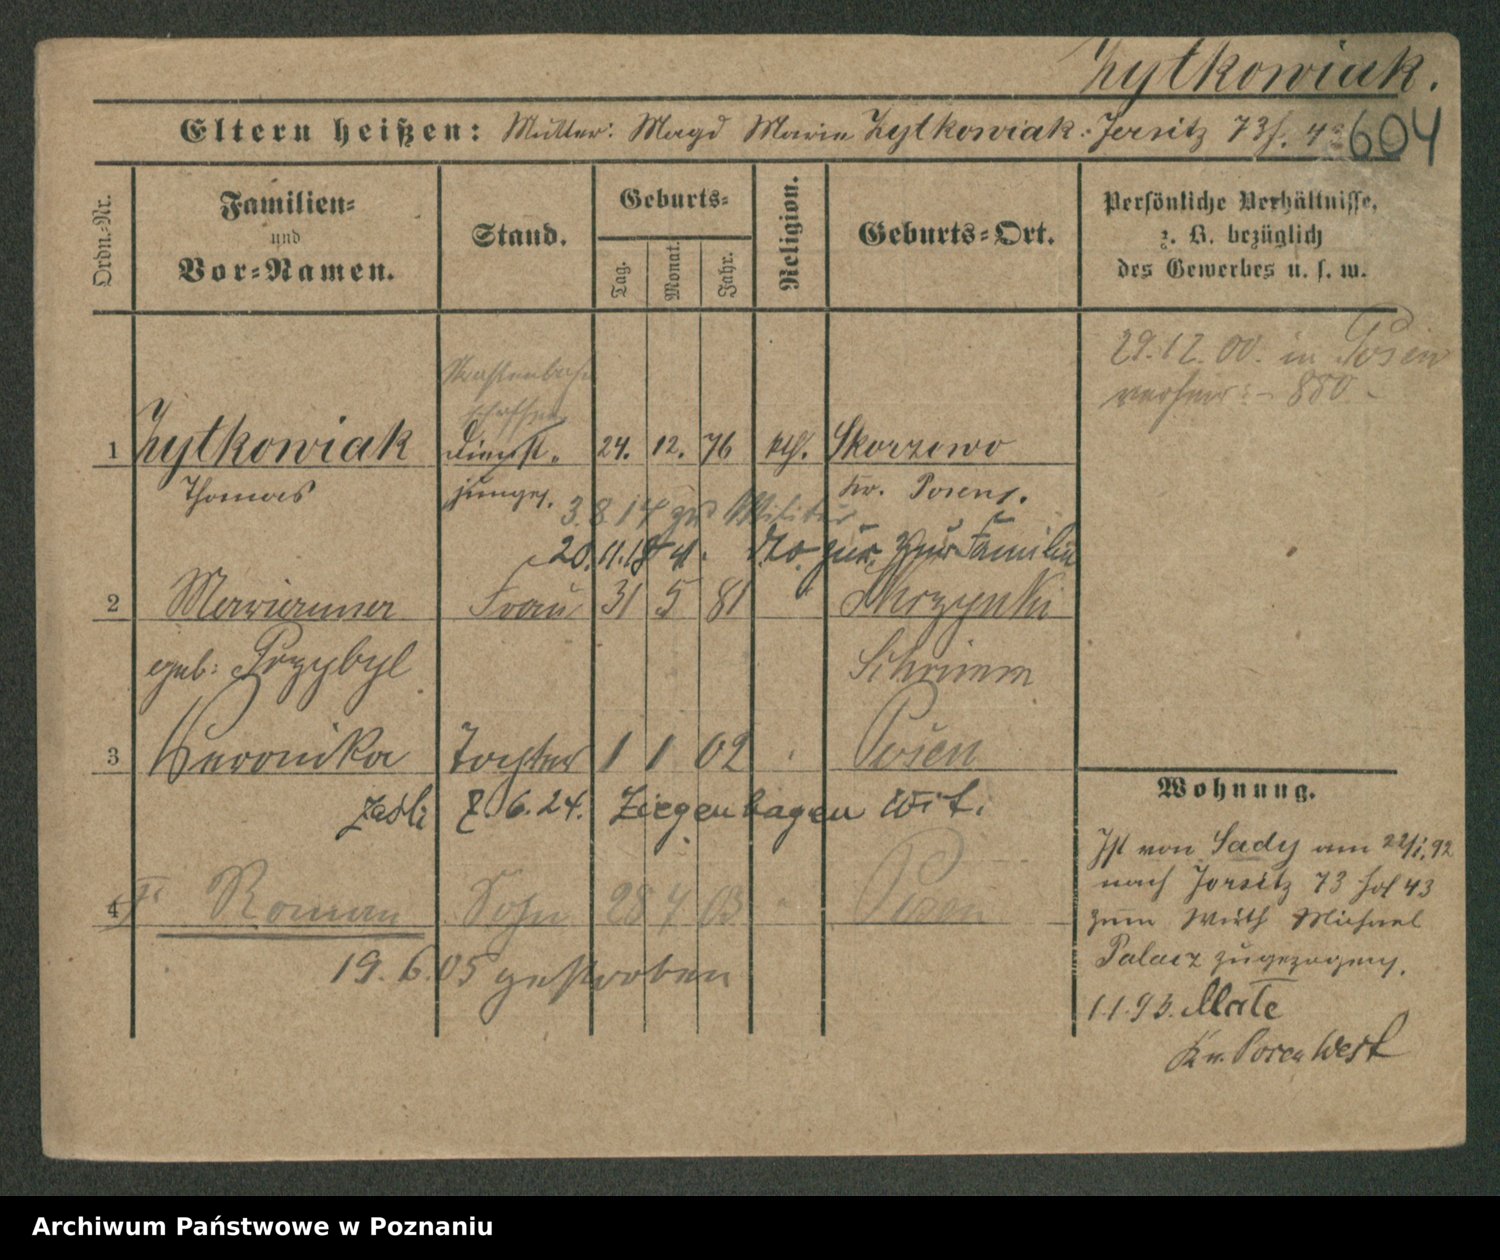 Zytkowiak.
Eltern heißen: Mutter: Magd Marie Zytkowiak. Jersitz 73 604
Ordn.-Nr.
Familien-
und
Vor-Namen.
Stand.
Geburts-
Tag.
Monat.
Jahr.
Religion.
Geburts-Ort.
Persönliche Verhältnisse,
z. B. bezüglich
des Gewerbes u. s. w.
29.12.00. in Posen
1 Zytkowiak Dienst- 24. 12. 76 kth. Skorzewo
Thomas junge. Kr. Posen.
3.8.17 zum Militär
20.11.18 zur Familie
2 Marianna Frau 31 5 81
geb: Przybyl Schrimm
3 Veronika Tochter 1 1 02 Posen
7.6.24. Ziegenhagen
4 Roman Sohn 28 7 03 Posen
19.6.05 gestorben
Wohnung.
Ist von Sady am 22/1.92
nach Jersitz 73 bei 43
zum Wirth Michael
Palacz zugezogen.
1.1.93.
Kr. Posen West
Archiwum Państwowe w Poznaniu